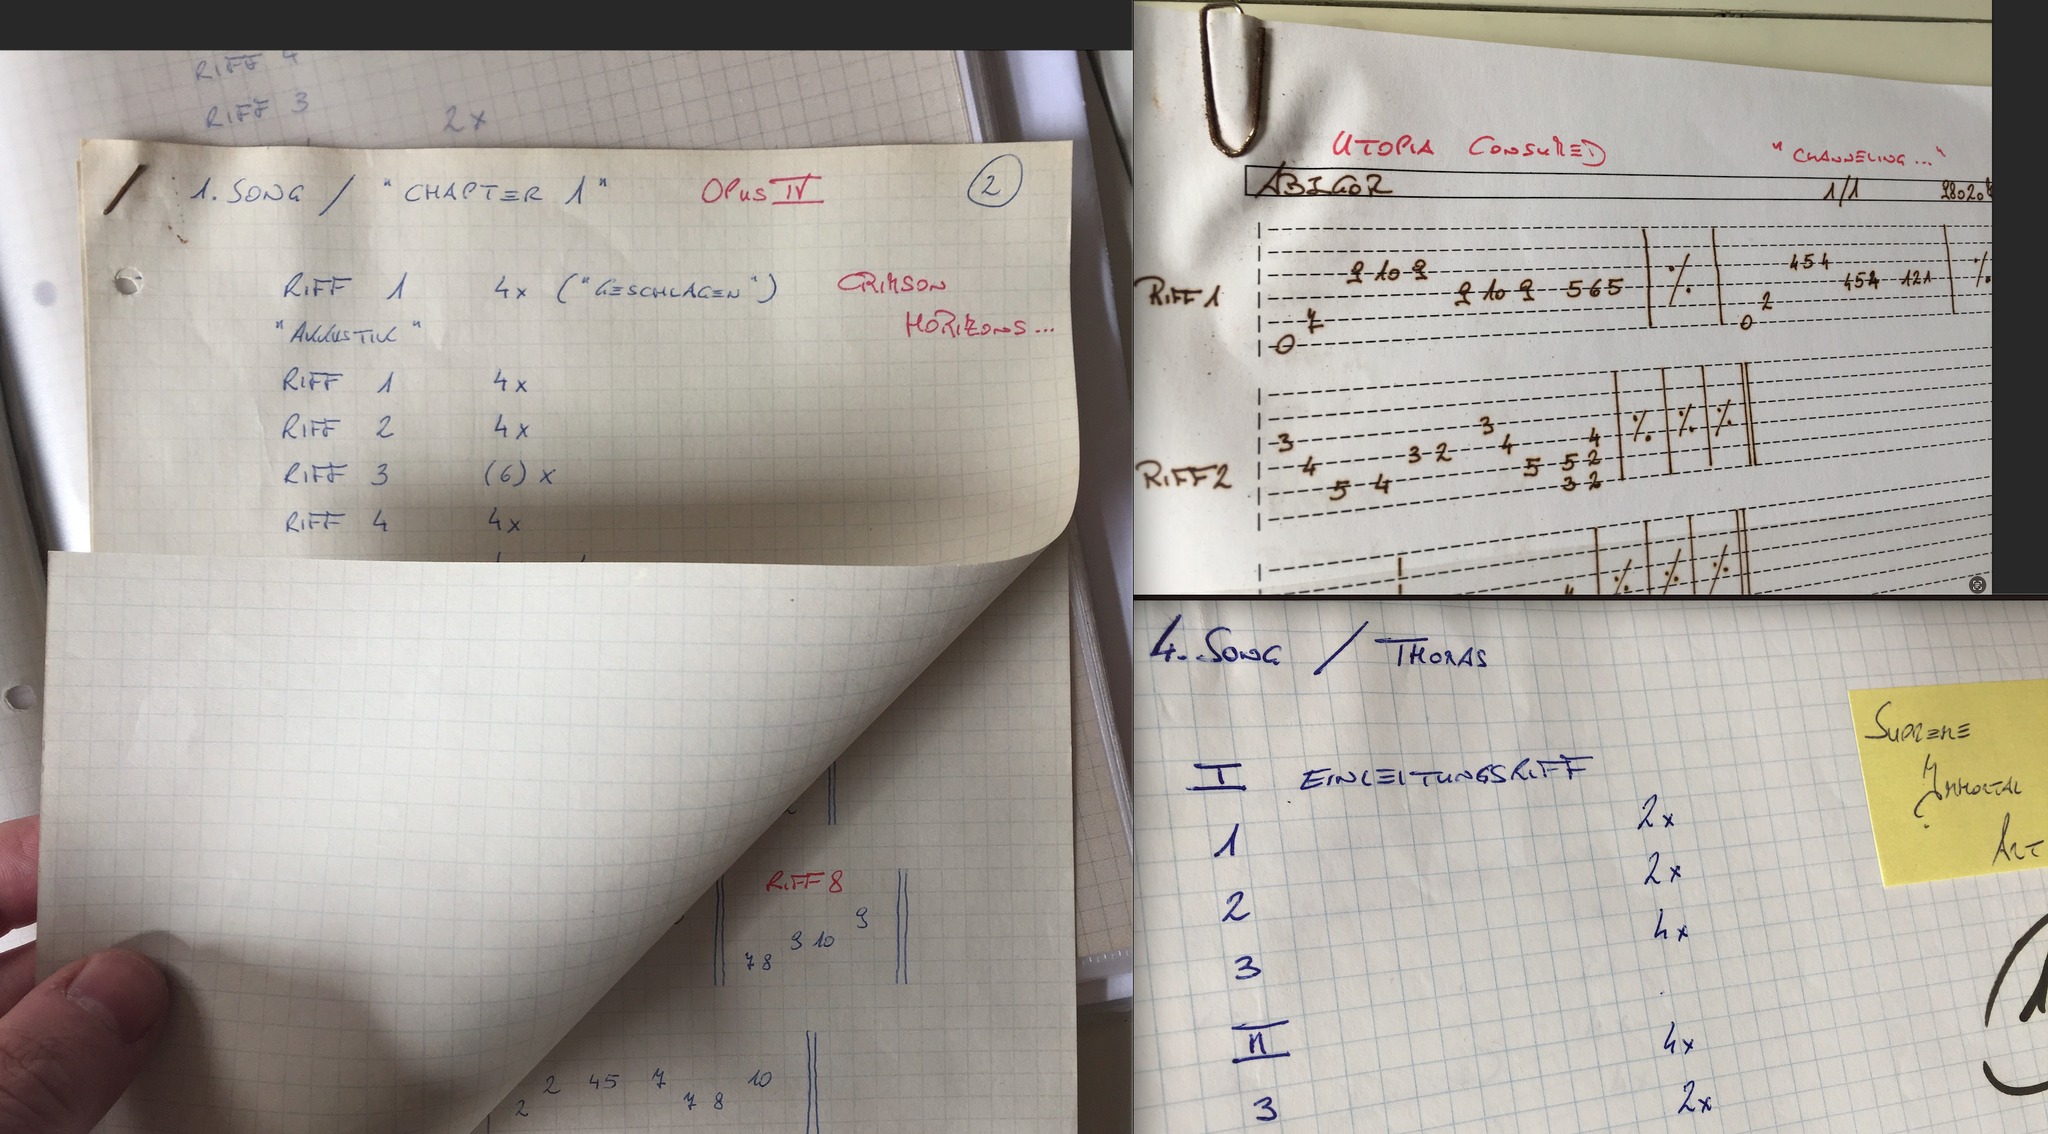 RIFF 4
RIFF 3 2x
1. SONG / "CHAPTER 1" OPUS IV 2
RIFF 1 4x ("GESCHLAGEN") CRIMSON
"AKKUSTIK" HORIZONS...
RIFF 1 4x
RIFF 2 4x
RIFF 3 (6) x
RIFF 4 4x
RIFF 8
9
9 10
7 8
2 45 7 10
2 7 8
UTOPIA CONSUMED "CHANNELING..."
ABIGOR 1/1
RIFF 1
9 10 9 454
9 10 9 565 % 454 121 %
7 2
0 0
RIFF 2
3
3 4 4
4 3 2 5 5 2 % % %
5 4 3 2
% % %
4. SONG / THOMAS
I EINLEITUNGSRIFF
1 2x
2 2x
3 4x
II 4x
3 2x
SUPREME
IMMORTAL
ART